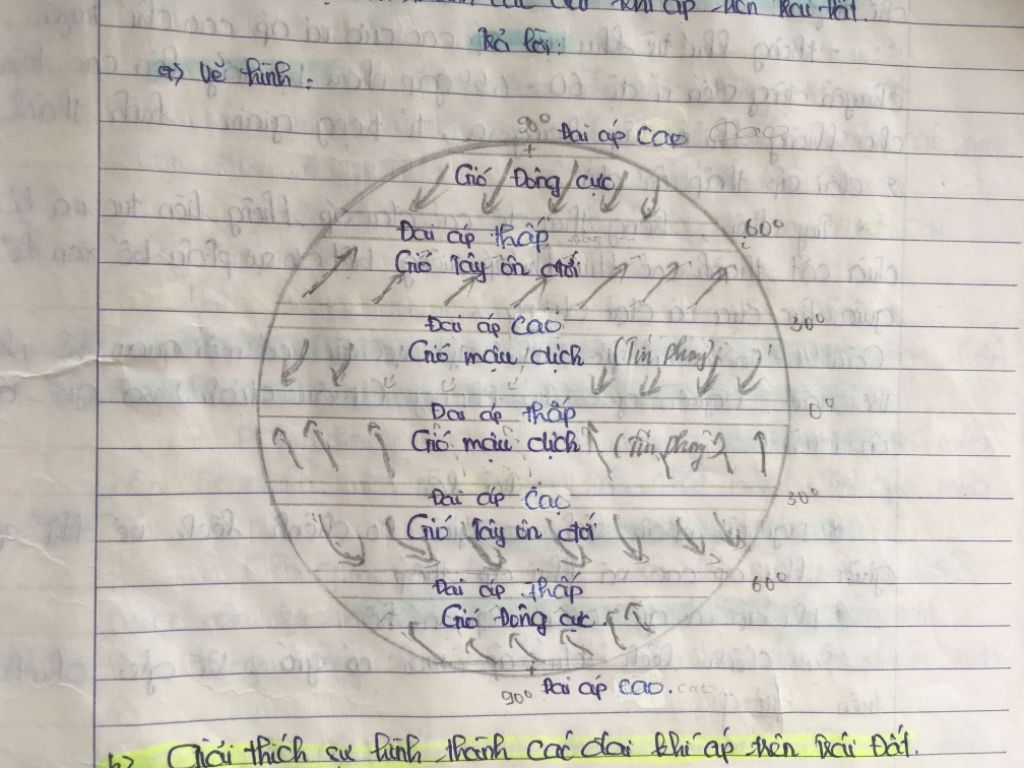 khí áp trên Trái Đất.
Trả lời:
a) Vẽ hình:
90° Đai áp Cao
Gió Đông cực
60°
Đai áp thấp
Gió Tây ôn đới
Đai áp Cao 30°
Gió mậu dịch (Tín phong)
Đai áp thấp 0°
Gió mậu dịch (Tín phong)
Đai áp Cao 30°
Gió Tây ôn đới
Đai áp thấp 60°
Gió Đông cực
90° Đai áp cao. cao
b) Giải thích sự hình thành các đai khí áp trên Trái Đất.